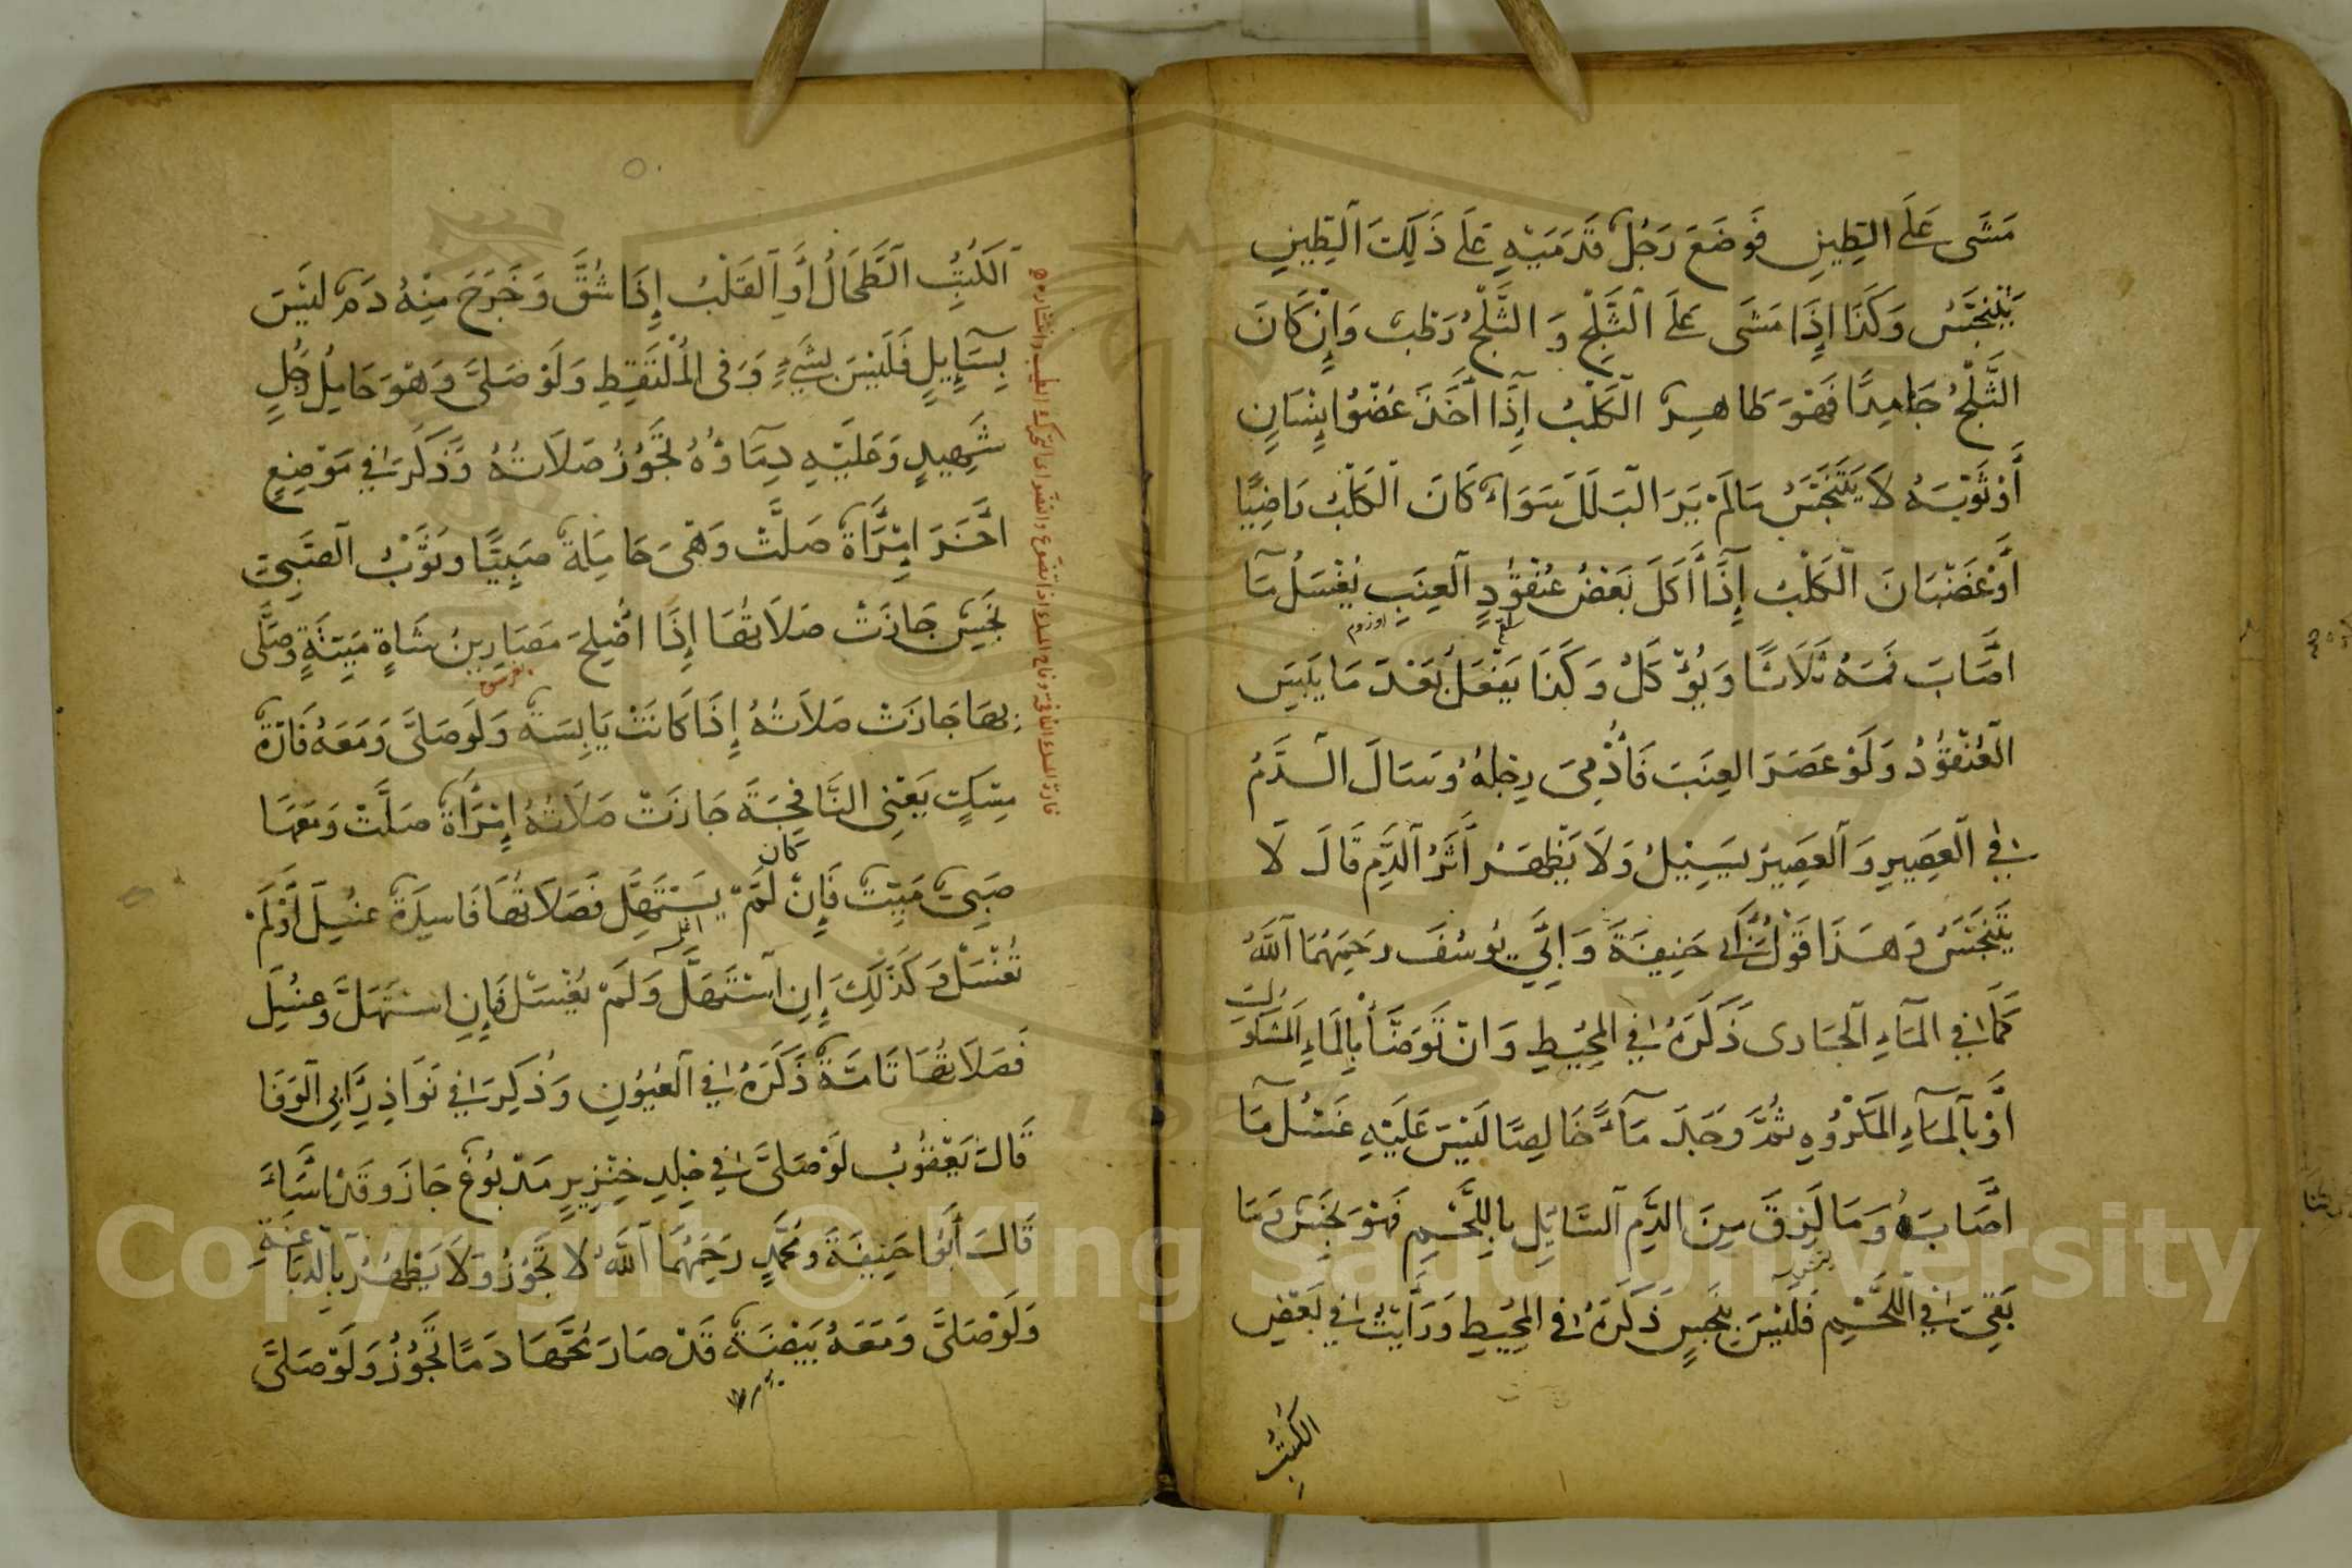 مَشَى عَلَى الطِّينِ فَوَضَعَ رَجُلٌ قَدَمَيْهِ عَلَى ذَلِكَ الطِّينِ
يَتَنَجَّسُ وَكَذَا إِذَا مَشَى عَلَى الثَّلْجِ وَ الثَّلْجُ رَطْبٌ وَإِنْ كَانَ
الثَّلْجُ جَامِدًا فَهُوَ طَاهِرٌ الْكَلْبُ إِذَا أَخَذَ عُضْوَ إِنْسَانٍ
أَوْ ثَوْبَهُ لَا يَتَنَجَّسُ مَالَمْ يَرَ الْبَلَلَ سَوَاءٌ كَانَ الْكَلْبُ رَاضِيًا
أَوْ غَضْبَانَ الْكَلْبُ إِذَا أَكَلَ بَعْضَ عُنْقُودِ الْعِنَبِ يُغْسَلُ مَا
اوزوم
أَصَابَ فَمَهُ ثَلَاثًا وَيُؤْكَلُ وَكَذَا يَفْعَلُ بَعْدَ مَا يَبِسَ
الْعُنْقُودُ وَلَوْ عَصَرَ الْعِنَبَ فَأُدْمِيَ رِجْلُهُ وَسَالَ الدَّمُ
فِي الْعَصِيرِ وَالْعَصِيرُ يَسِيلُ وَلَا يَظْهَرُ أَثَرُ الدَّمِ قَالَ لَا
يَتَنَجَّسُ وَهَذَا قَوْلُ أَبِي حَنِيفَةَ وَابِي يُوسُفَ رَحِمَهُمَا اللَّهُ
كَمَا فِي الْمَاءِ الْجَارِى ذَكَرَهُ فِي الْمُحِيطِ وَانْ تَوَضَّأَ بِالْمَاءِ الْمَشْكُوكِ
أَوْ بِالْمَاءِ الْمَكْرُوهِ ثُمَّ وَجَدَ مَاءً خَالِصًا لَيْسَ عَلَيْهِ غَسْلُ مَا
أَصَابَهُ وَمَا لَزِقَ مِنَ الدَّمِ السَّائِلِ بِاللَّحْمِ فَهُوَ نَجِسٌ وَمَا
بَقِيَ فِي اللَّحْمِ فَلَيْسَ بِنَجِسٍ ذَكَرَهُ فِي الْمُحِيطِ وَرَأَيْتُ فِي بَعْضِ
الْكُتُبِ
الْكُتُبِ الطِّحَالُ أَوِ الْقَلْبُ إِذَا شُقَّ وَخَرَجَ مِنْهُ دَمٌ لَيْسَ
بِسَائِلٍ فَلَيْسَ بِشَيْءٍ وَفِى الْمُلْتَقِطِ وَلَوْ صَلَّى وَهُوَ حَامِلُ رَجُلٍ
شَهِيدٍ وَعَلَيْهِ دِمَاؤُهُ تَجُوزُ صَلَاتُهُ وَذَكَرَ فِي مَوْضِعٍ
اخَرَ امْرَأَةٌ صَلَّتْ وَهِىَ حَامِلَةٌ صَبِيًّا وَثَوْبُ الصَّبِيِّ
نَجِسٌ جَازَتْ صَلَاتُهَا إِذَا اصْلِحَ مَصَارِينُ شَاةٍ مَيِّتَةٍ وَصَلَّى
بِهَا جَازَتْ صَلَاتُهُ إِذَا كَانَتْ يَابِسَةً وَلَوْ صَلَّى وَمَعَهُ فَارَةُ
مِسْكٍ يَعْنِى النَّافِجَةَ جَازَتْ صَلَاتُهُ إِمْرَأَةٌ صَلَّتْ وَمَعَهَا
كان
صَبِيٌّ مَيِّتٌ فَإِنْ لَمْ يَسْتَهِلَّ فَصَلَاتُهَا فَاسِدَةٌ غُسِلَ أَوْ لَمْ
يُغْسَلْ وَكَذَلِكَ إِنِ اسْتَهَلَّ وَلَمْ يُغْسَلْ فَإِنِ اسْتَهَلَّ وَغُسِلَ
فَصَلَاتُهَا تَامَّةٌ ذَكَرَهُ فِي الْعُيُونِ وَذُكِرَ فِي نَوَادِرِ أَبِى الْوَفَا
قَالَ يَعْقُوبُ لَوْ صَلَّى فِي جِلْدِ خِنْزِيرٍ مَدْبُوغٍ جَازَ وَقَدْ اَسَاءَ
قَالَ أَبُوا حَنِيفَةَ وَمُحَمَّدٌ رَحِمَهُمَا اللَّهُ لَا تَجُوزُ وَلَا يَطْهُرُ بِالدِّبَاغَةِ
وَلَوْ صَلَّى وَمَعَهُ بَيْضَةٌ قَدْ صَارَ مُحُّهَا دَمًا تَجُوزُ وَلَوْ صَلَّى
Copyright © King Saud University